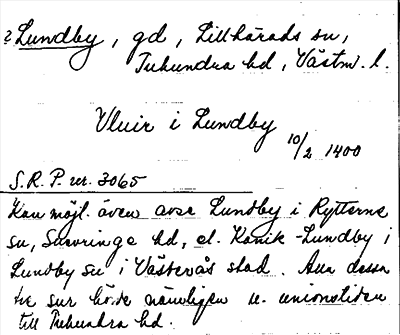 ? Lundby, gd, Lillhärads sn,
Tuhundra hd, Västm. l.
Vluir i Lundby
10/2 1400
S.R.P. nr. 3065
Kan möjl. även avse Lundby i Rytterne
sn, Snevringe hd, el. Kanik-Lundby i
Lundby sn i Västerås stad. Alla dessa
tre snr hörde nämligen u. unionstiden
till Tuhundra hd.